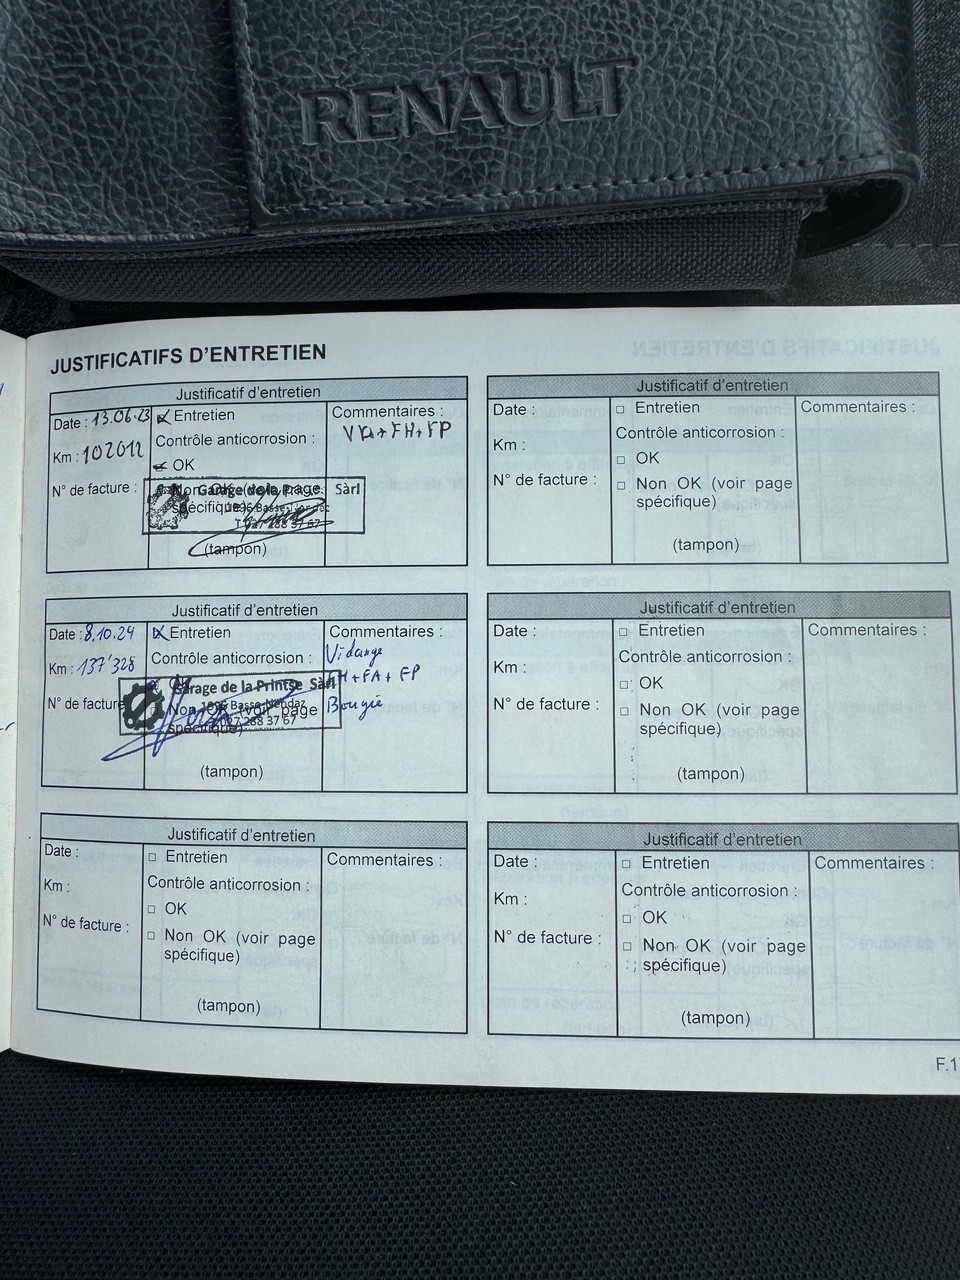 RENAULT
JUSTIFICATIFS D'ENTRETIEN
Justificatif d'entretien
Date : 13.06.23
Km : 102012
N° de facture :
Entretien
Contrôle anticorrosion :
OK
Non OK (voir page
spécifique)
Garage de la Sàrl
(tampon)
Commentaires :
+ FH + FP
Justificatif d'entretien
Date :
Km :
N° de facture :
Entretien
Contrôle anticorrosion :
OK
Non OK (voir page
spécifique)
(tampon)
Commentaires :
Justificatif d'entretien
Date : 8.10.24
Km : 137'328
N° de facture
Entretien
Contrôle anticorrosion :
Non OK (voir page
spécifique)
Garage de la Printse Sàrl
1996 Basse-Nendaz
027 288 37 67
(tampon)
Commentaires :
Vidange
FH + FA + FP
Bougie
Justificatif d'entretien
Date :
Km :
N° de facture :
Entretien
Contrôle anticorrosion :
OK
Non OK (voir page
spécifique)
(tampon)
Commentaires :
Justificatif d'entretien
Date :
Km :
N° de facture :
Entretien
Contrôle anticorrosion :
OK
Non OK (voir page
spécifique)
(tampon)
Commentaires :
Justificatif d'entretien
Date :
Km :
N° de facture :
Entretien
Contrôle anticorrosion :
OK
Non OK (voir page
spécifique)
(tampon)
Commentaires :